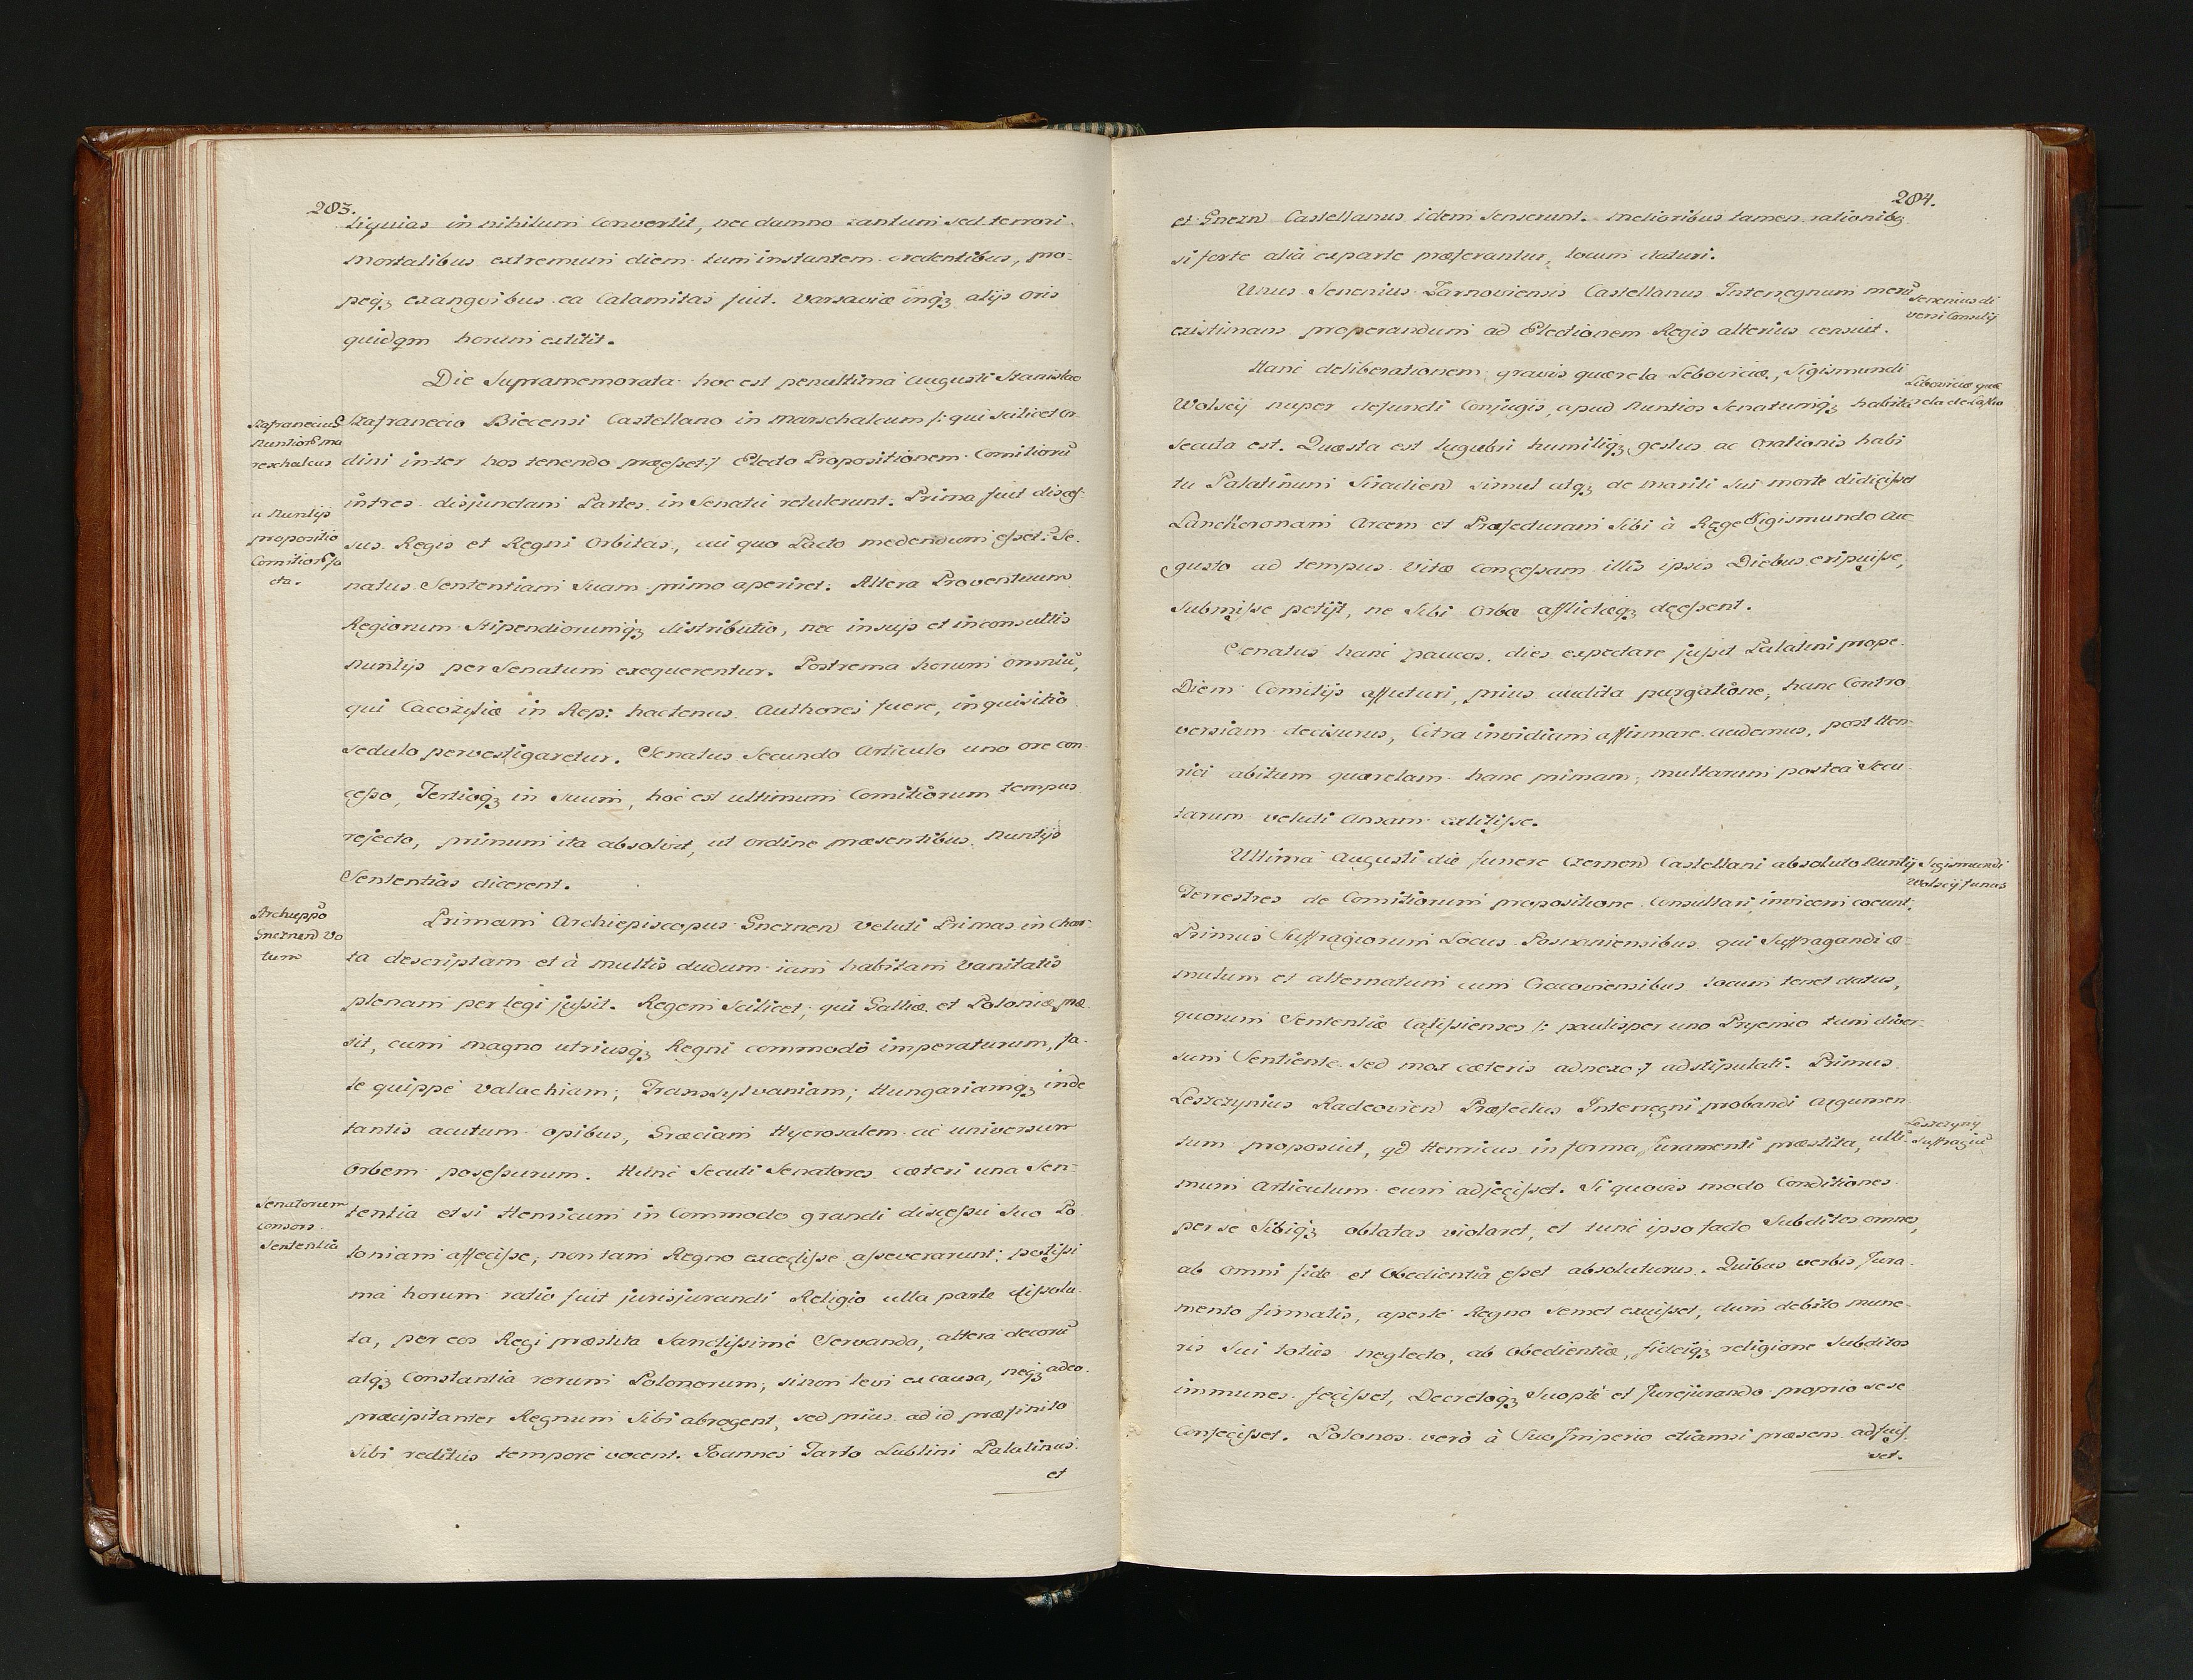 283.
liquias in nihilum convertit, nec damno tantum sed terrori
Mortalibus extremum diem tum instantem credentibus, pro-
peqz exanguibus ea Calamitas fuit. Varsaviæ inqz alijs oris
quidqm horum extitit.
Die Supramemorata hoc est penultima Augusti Stanislao
Szafranecius
Nuntiorũ ma
reschalcus
Szafranecio Biecensi Castellano in Marschalcum /: qui scilicet or
dini inter hos tenendo præesset :/ Electo Propositionem Comitiorũ
a Nuntijs
propositio
Comitiorũ fa
cta.
in tres disjunctam Partes in Senatu retulerunt. Prima fuit disces-
sus Regis et Regni Orbitas, cui quo Pacto medendum esset: Se-
natus Sententiam Suam primo aperiret. Altera Proventuum
Regiorum Stipendiorumqz distributio, nec inscijs et inconsultis
Nuntijs per Senatum exequerentur. Postrema horum omniũ,
qui Cacozisiæ in Rep: hactenus Authores fuere, inquisitio
sedulo pervestigaretur. Senatus Secundo Articulo uno ore con-
cesso, Tertioqz in Suum, hoc est ultimum Comitiorum tempus
rejecto, primum ita absolvit, ut ordine præsentibus Nuntijs
Sententias dicerent.
Archieppo
Gneznen Vo
tum
Primam Archiepiscopus Gneznen veluti Primas in Char-
ta descriptam et à multis dudum iam habitam Vanitatis
plenam perlegi jussit. Regem Scilicet, qui Galliæ et Poloniæ præ
sit, cum magno utriusqz Regni commodo imperaturum, fa-
te quippe Valachiam; Transsylvaniam; Hungariamqz inde
tantis acutum opibus, Græciam Hyerosalem ac universum
Orbem possessurum. Hunc Secuti Senatores cæteri una Sen-
Senatorum
consors
Sententia
tentia etsi Henricum in Commodo grandi discessu Suo Po-
loniam affecisse, non tam Regno excessisse asseverarunt: potissi
ma horum ratio fuit jurisjurandi Religio ulla parte dissolu-
ta, per eos Regi præstita Sanctissime Servanda, altera decorũ
atqz Constantia rerum Polonorum, si non levi ex causa, neqz adeo
præcipitanter Regnum Sibi abrogent, sed prius ad id præfinito
Sibi reditus tempore vocent. Joannes Tarlo Lublini Palatinus
et
284.
et Gnezn Castellanus idem Senserunt. melioribus tamen rationibz
si forte alia exparte præferantur, locum daturi.
Unus Senenius Zarnoviensis Castellanus Interregnum merũ
Senenius di
versi Consilij
existimans properandum ad Electionem Regis alterius censuit.
Hanc deliberationem gravis quærela Lebovicia, Sigismundi
Lebovicia quæ
rela de Laslio
Wolscij nuper defuncti Conjugis, apud Nuntios Senatumqz habita
secuta est. Quæsta est lugubri humiliqz gestus ac Orationis habi
tu Palatinum Siradien simul atqz de mariti sui morte didicisset
Lanckoronam Arcem et Præfecturam Sibi à Rege Sigismundo Au-
gusto ad tempus Vitæ concessam illis ipsis Diebus eripuisse,
submisse petijt, ne Sibi orbæ afflictæqz deessent.
Senatus hanc paucos dies expectare jussit Palatini prope
Diem Comitijs affuturi, prius audita purgatione, hanc Contro
versiam decisurus, Citra invidiam affirmare audemus, post Hen-
rici abitum quærelam hanc primam, multarum postea Secu-
tarum veluti Ansam extitisse.
Ultima Augusti die funere Czernen Castellani absoluto Nuntij
Sigismundi
Wolscij funus
Terrestres de Comitiorum propositione Consultari invicem coeunt.
Primus Suffragiorum Locus Posnaniensibus qui Suffragandi æ-
mulum et alternatum cum Cracoviensibus locum tenet datus,
quorum Sententiæ Calissienses /: paulisper uno Pryemio tum diver-
sum Sentiente sed mox cæteris adnexo :/ adstipulati. Primus
Leszczynius Radeovien Præfectus Interregni probandi argumen
Leszczynij
Suffragiũ
tum proposuit, qd Henricus in forma Juramenti præstita, ulti-
mum Articulum eum adjecisset. Si quovis modo Conditiones
per se Sibiqz oblatas violaret, et tunc ipso facto Subditos omnes,
ab omni fide et Obedientia esset absoluturus. Quibus verbis Jura-
mento firmatis, aperte Regno semet exuisset, dum debito mune-
ris Sui toties neglecto, ab Obedientiæ, fideiqz religione Subditos
immunes fecisset, Decretoqz Suopte et Jurejurando proprio sese
Confecisset. Polonos verò à Suo Imperio etiamsi præsens adfuis-
set.